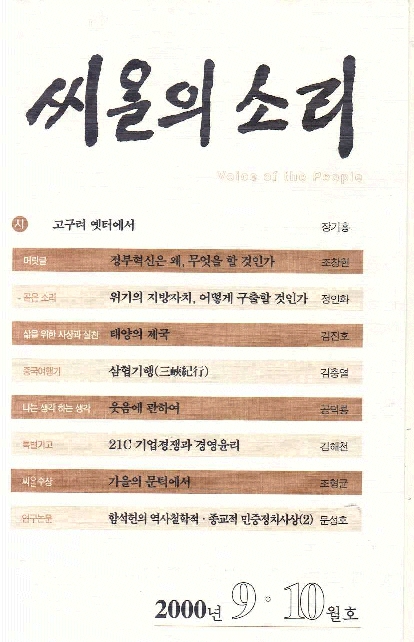 씨올의 소리
Voice of the People
시 고구려 옛터에서 장기홍
머릿글 정부혁신은 왜, 무엇을 할 것인가 조창현
곧은 소리 위기의 지방자치, 어떻게 구출할 것인가 정인화
삶을 위한 사상과 실천 태양의 제국 김진호
중국여행기 삼협기행(三峽紀行) 김충열
나는 생각 하는 생각 웃음에 관하여 공덕룡
특별기고 21C 기업경쟁과 경영윤리 김해천
씨올수상 가을의 문턱에서 조형균
연구논문 함석헌의 역사철학적·종교적 민중정치사상(2) 문성호
2000년 9·10월호